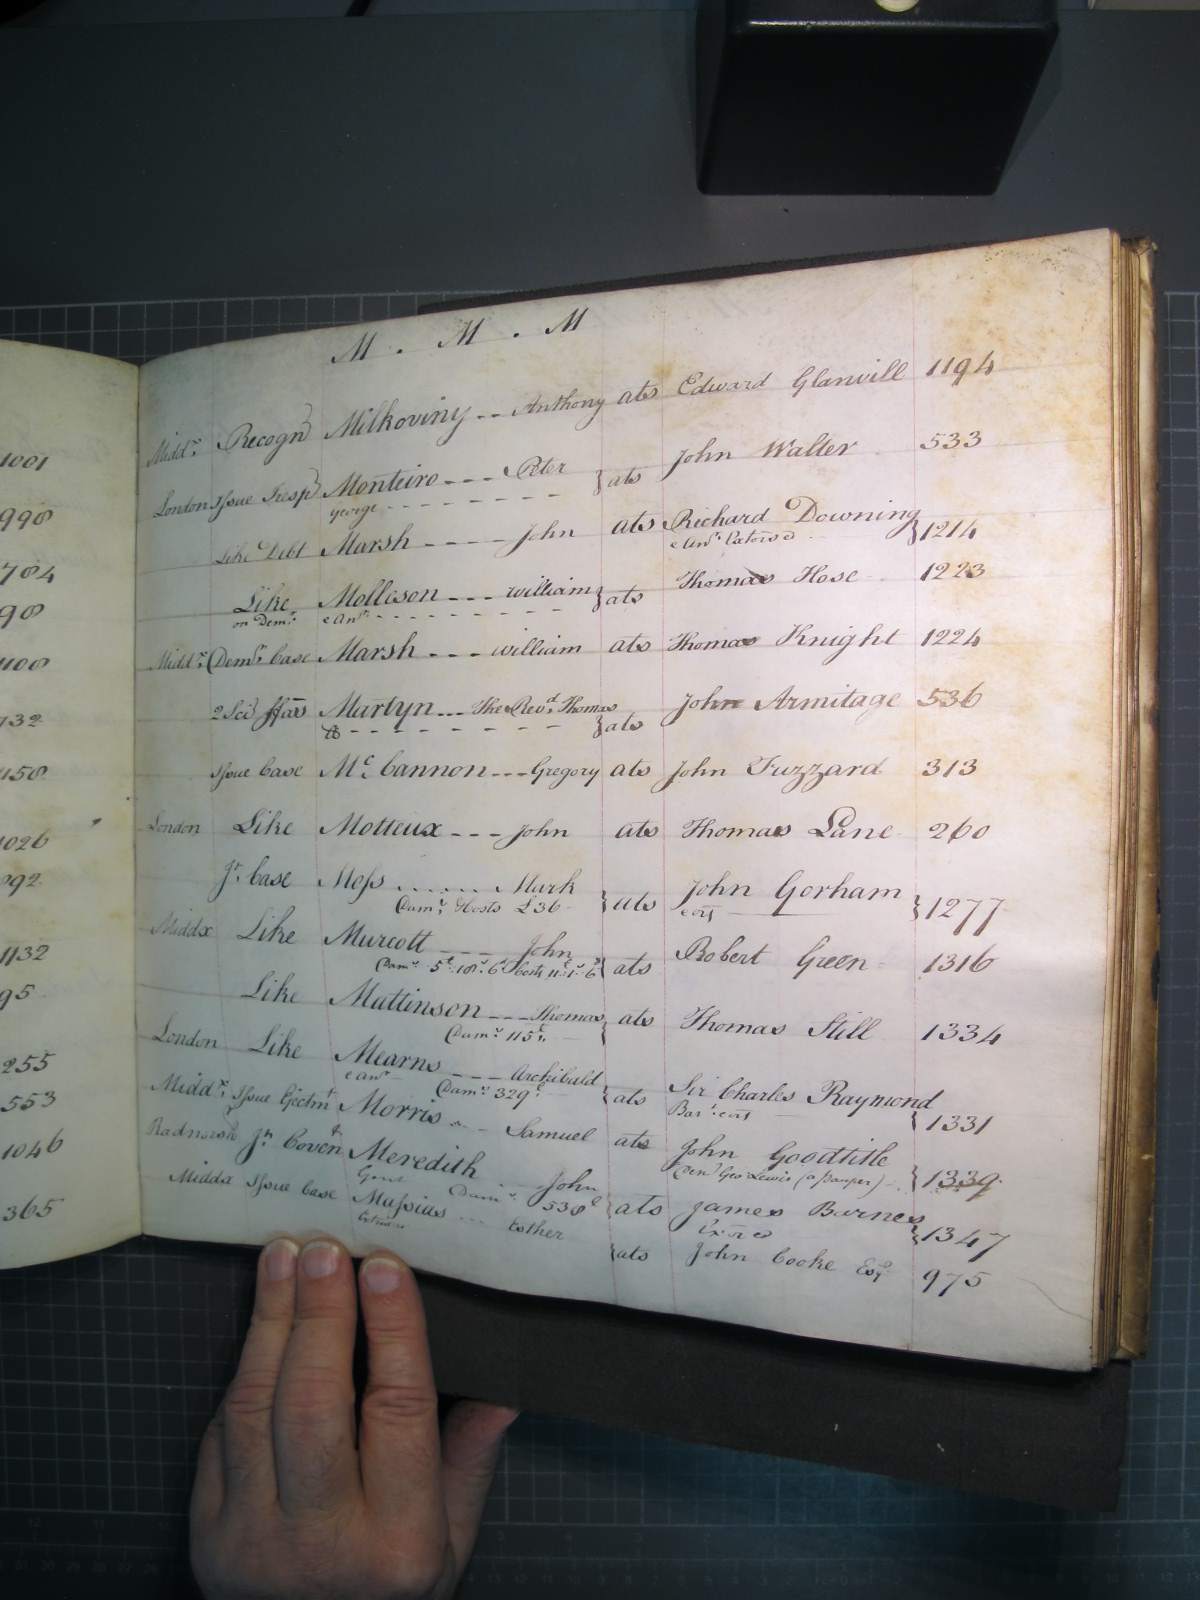 M . M . M
Midd.x Recogn Milkoviny -- Anthony ats Edward Glanvill 1194
London Issue Tresp Monteiro --- Peter } ats John Walter 533
George - - - - - - -
Like Debt Marsh ---- John ats Richard Downing } 1214
& anr
Like Mollison --- william } ats Thomas Hose 1223
on Demr. & anr. - - - - - - -
Midd.x Demr. Case Marsh --- william ats Thomas Knight 1224
2 Sci ffas Martyn --- The Revd. Thomas } ats John Armitage 536
Issue Case Mc. Cannon --- Gregory ats John Fuzzard 313
London Like Motteux --- John ats Thomas Lane 260
Jt. Case Moss ...... Mark } ats John Gorham } 1277
Dams. Costs £36
Middx Like Murcott ---- John } ats Robert Green 1316
Dams. 5£.10s.6d Costs 11£.1s.6d
Like Mattinson --- Thomas } ats Thomas Still 1334
Dams. 115£.
London Like Mearns ---- Archibald } ats Sir Charles Raymond } 1331
& anr Dams. 329£ Bart.
Midd.x Issue Ejectmt Morris --- Samuel ats John Goodtitle } 1339
Dem Geo Lewis (a pauper)
Radnorsh Jt. Covent Meredith -- John } ats James Barnes } 1347
Gent Dams. 538£
Middx Issue Case Massias --- Esther } ats John Cooke Esqr. 975
1001
998
784
98
1108
732
1158
1026
1132
95
255
553
1046
365